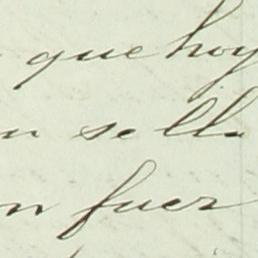 que hoy
n se ll
n fuer